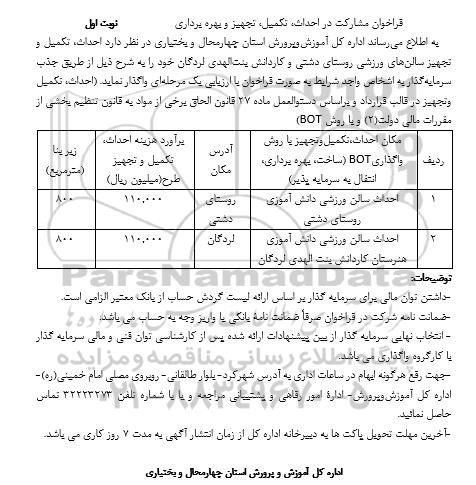 قراخوان مشارکت در احداث، تکمیل، تجهیز و بهره برداری نوبت اول
به اطلاع می‌رساند اداره کل آموزش‌وپرورش استان چهارمحال و بختیاری در نظر دارد احداث، تکمیل و
تجهیز سالن‌های ورزشی روستای دشتی و کاردانش بنت‌الهدی لردگان خود را به شرح ذیل از طریق جذب
سرمایه‌گذار به اشخاص واجد شرایط به صورت فراخوان با ارزیابی یک مرحله‌ای واگذار نماید. (احداث، تکمیل
وتجهیز در قالب قرارداد و براساس دستوالعمل ماده ۲۷ قانون الحاق برخی از مواد به قانون تنظیم بخشی از
مقررات مالی دولت(۲) و با روش BOT)
ردیف | مکان احداث،تکمیل‌وتجهیز با روش واگذاری BOT (ساخت، بهره برداری، انتقال به سرمایه پذیر) | آدرس مکان | برآورد هزینه احداث، تکمیل و تجهیز طرح(میلیون ریال) | زیر بنا (مترمربع)
۱ | احداث سالن ورزشی دانش آموزی روستای دشتی | روستای دشتی | ۱۱۰,۰۰۰ | ۸۰۰
۲ | احداث سالن ورزشی دانش آموزی هنرستان کاردانش بنت الهدی لردگان | لردگان | ۱۱۰,۰۰۰ | ۸۰۰
توضیحات:
-داشتن توان مالی برای سرمایه گذار بر اساس ارائه لیست گردش حساب از بانک معتبر الزامی است.
-ضمانت نامه شرکت در فراخوان صرفاً ضمانت نامه بانکی یا واریز وجه به حساب می باشد.
- انتخاب نهایی سرمایه گذار از بین پیشنهادات ارائه شده پس از کارشناسی توان فنی و مالی سرمایه گذار
با کارگروه واگذاری می باشد.
-جهت رفع هرگونه ابهام در ساعات اداری به آدرس شهرکرد- بلوار طالقانی- روبروی مصلی امام خمینی(ره)-
اداره کل آموزش‌وپرورش- ادارهٔ امور رفاهی و پشتیبانی مراجعه و یا با شماره تلفن ۳۲۲۲۳۲۷۳ تماس
حاصل نمائید.
-آخرین مهلت تحویل پاکت ها به دبیرخانه اداره کل از زمان انتشار آگهی به مدت ۷ روز کاری می باشد.
اداره کل آموزش و پرورش استان چهارمحال و بختیاری
ParsNamadData